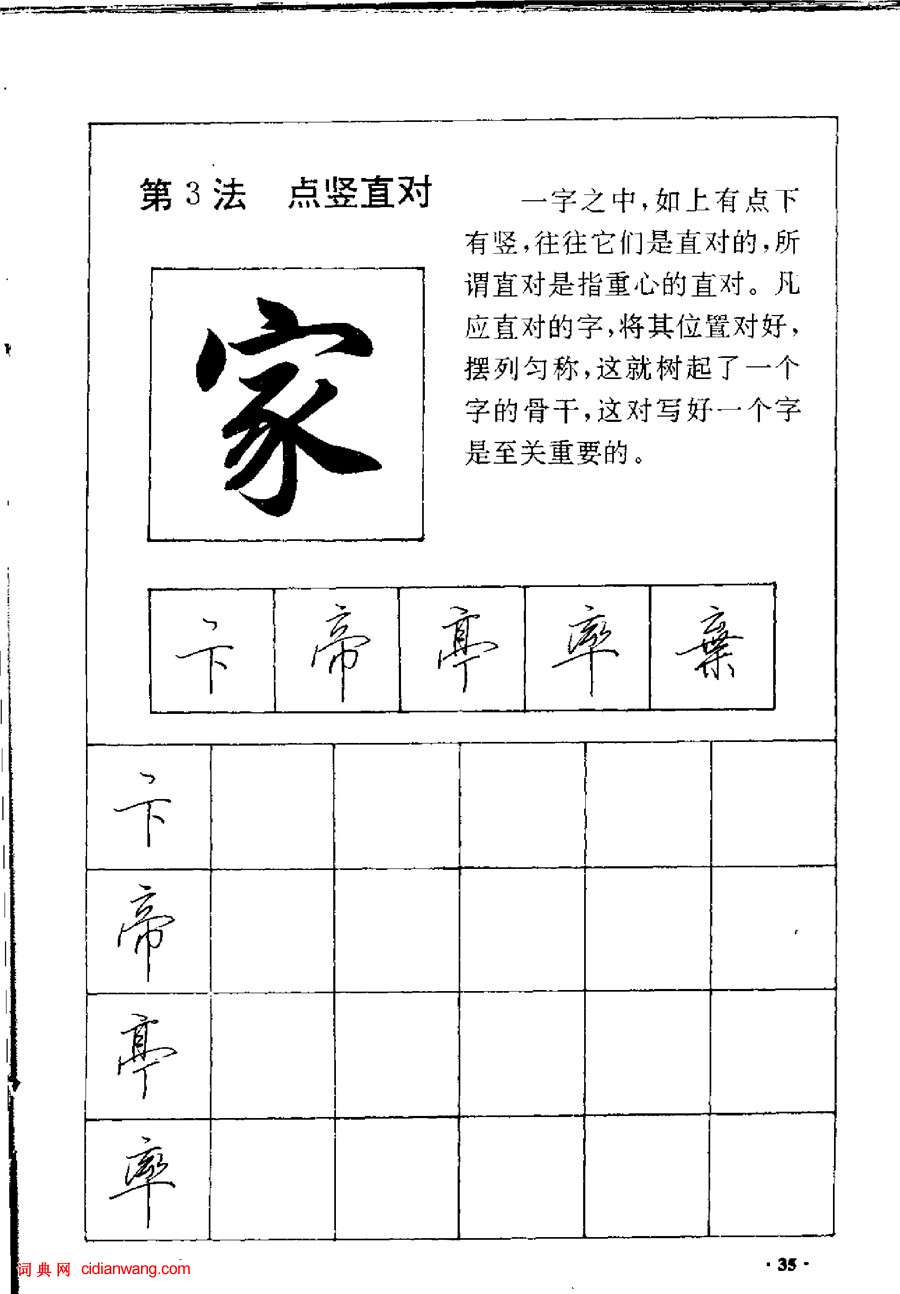 第3法 点竖直对
一字之中，如上有点下
有竖，往往它们是直对的，所
谓直对是指重心的直对。凡
应直对的字，将其位置对好，
摆列匀称，这就树起了一个
字的骨干，这对写好一个字
是至关重要的。
家
卞 帝 亭 率 棄
卞
帝
亭
率
·35·
词典网 cidianwang.com